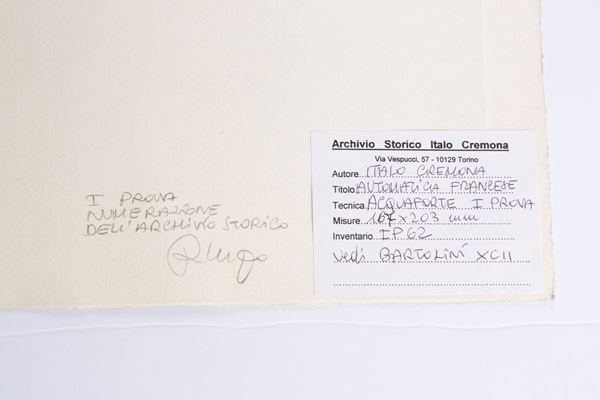 I PROVA
NUMERAZIONE
DELL'ARCHIVIO STORICO
Archivio Storico Italo Cremona
Via Vespucci, 57 - 10129 Torino
Autore ITALO CREMONA
Titolo AUTOMATICA FRANCESE
Tecnica ACQUAFORTE I PROVA
Misure 167 x 203 mm
Inventario IP62
vedi BARTOLINI XCII